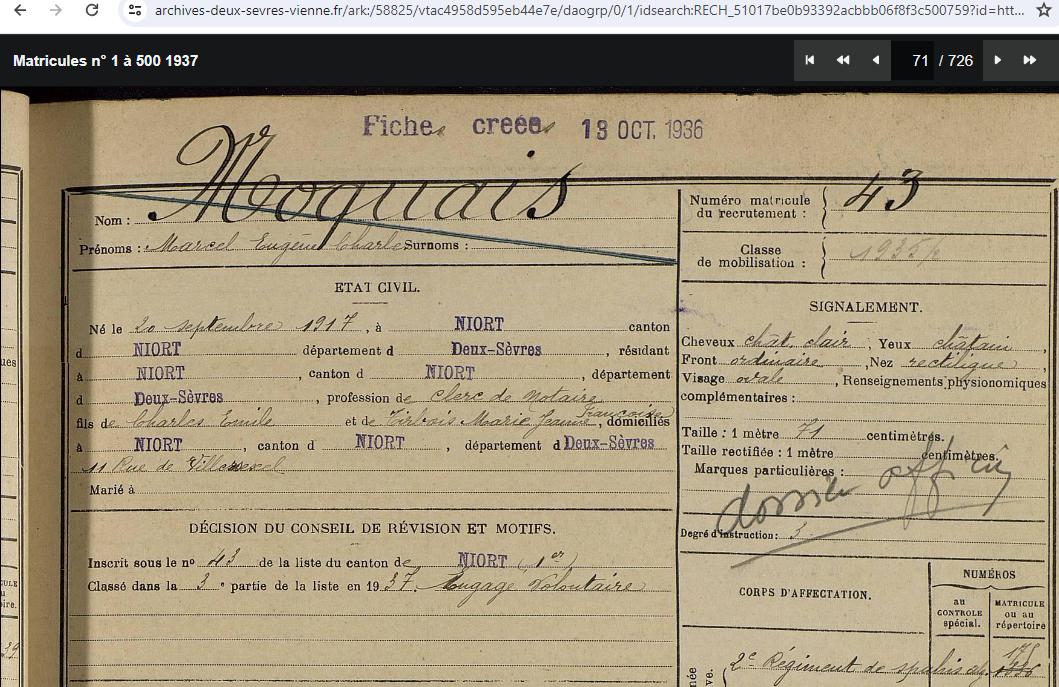 archives-deux-sevres-vienne.fr/ark:/58825/vtac4958d595eb44e7e/daogrp/0/1/idsearch:RECH_51017be0b93392acbbb06f8f3c500759?id=htt...
Matricules n° 1 à 500 1937
71 / 726
Fiches creées 13 OCT. 1936
Nom : Moquais
Prénoms : Marcel Eugène Charles Surnoms :
Numéro matricule du recrutement : 43
Classe de mobilisation : 1935/
ETAT CIVIL.
Né le 20 septembre 1917, à NIORT canton
d NIORT département d Deux-Sèvres, résidant
à NIORT, canton d NIORT, département
d Deux-Sèvres, profession de clerc de notaire
fils de Charles Emile et de Tirbois Marie Jeanne Françoise, domiciliés
à NIORT, canton d NIORT, département d Deux-Sèvres
11 Rue de Villersexel
Marié à
SIGNALEMENT.
Cheveux chât. clair, Yeux châtain,
Front ordinaire, Nez rectiligne,
Visage ovale, Renseignements physionomiques
complémentaires :
Taille : 1 mètre 71 centimètres.
Taille rectifiée : 1 mètre centimètres.
Marques particulières :
dossier
Degré d'instruction : 3
DÉCISION DU CONSEIL DE RÉVISION ET MOTIFS.
Inscrit sous le n° 43 de la liste du canton de NIORT (1er)
Classé dans la 3e partie de la liste en 1937. Engagé Volontaire
CORPS D'AFFECTATION.
NUMÉROS
au CONTROLE spécial.
MATRICULE ou au répertoire
2e Régiment de spahis alg.